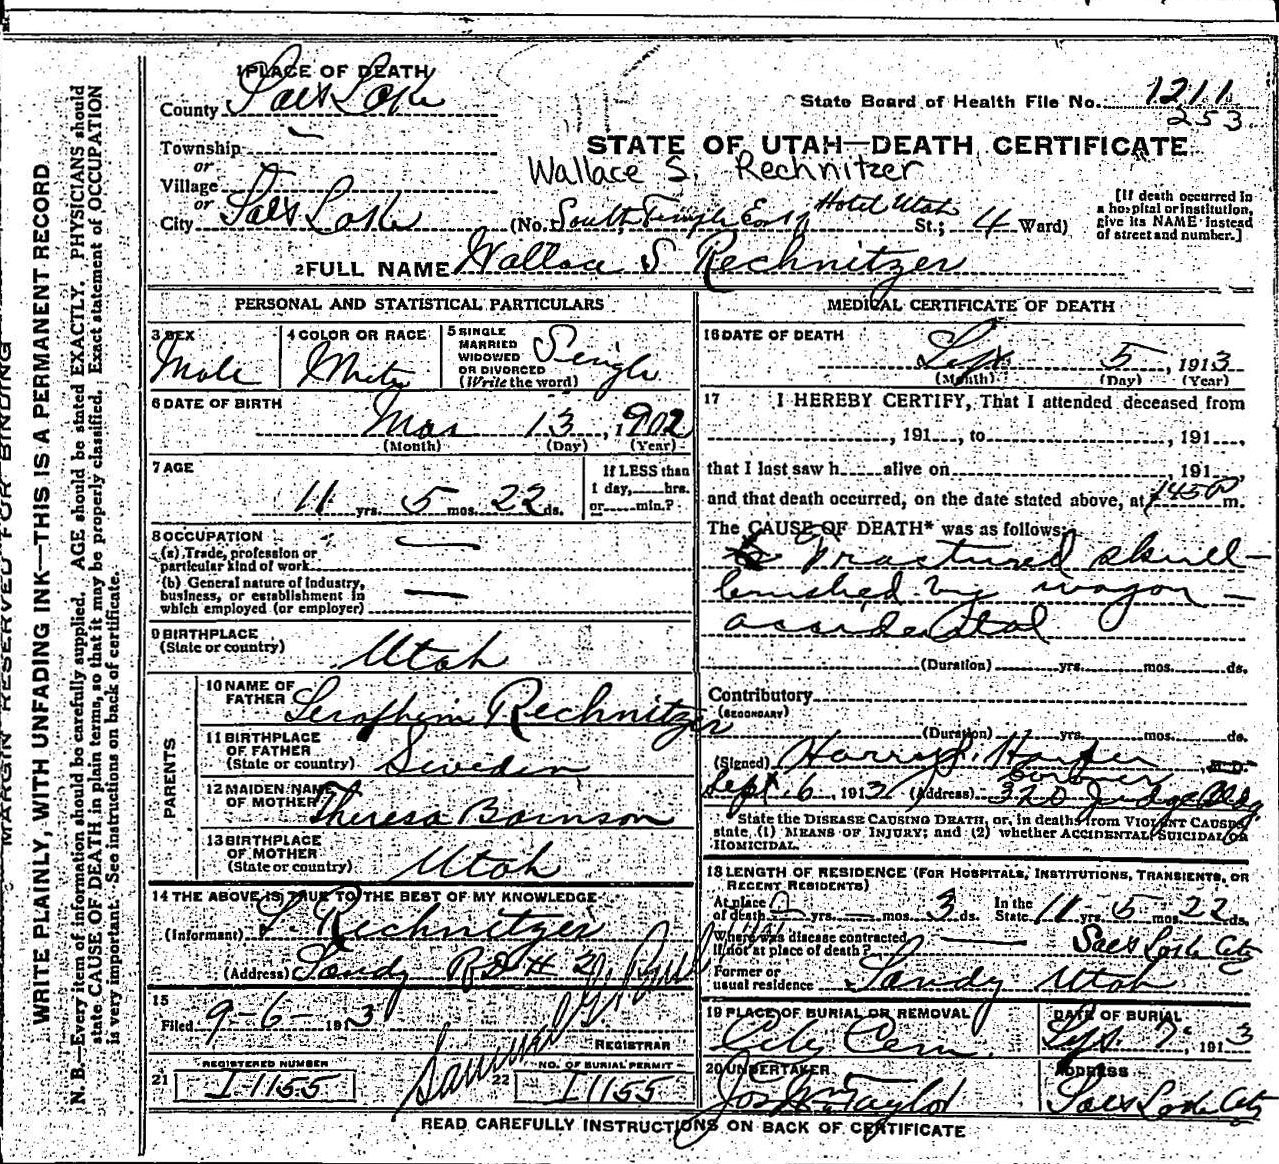 1 PLACE OF DEATH
County Salt Lake
State Board of Health File No. 1211
253
Township —
or
Village
or
City Salt Lake
STATE OF UTAH—DEATH CERTIFICATE
Wallace S. Rechnitzer
(No. South Temple East Hotel Utah St.; 4 Ward)
[If death occurred in a hospital or institution, give its NAME instead of street and number.]
2 FULL NAME Wallace S Rechnitzer
PERSONAL AND STATISTICAL PARTICULARS
3 SEX
Male
4 COLOR OR RACE
White
5 SINGLE
MARRIED
WIDOWED
OR DIVORCED
(Write the word)
Single
6 DATE OF BIRTH
Mar 13, 1902
(Month) (Day) (Year)
7 AGE
11 yrs. 5 mos. 22 ds.
If LESS than
1 day, hrs.
or min.?
8 OCCUPATION
(a) Trade, profession or
particular kind of work —
(b) General nature of industry,
business, or establishment in
which employed (or employer) —
9 BIRTHPLACE
(State or country) Utah
PARENTS
10 NAME OF
FATHER Seraphim Rechnitzer
11 BIRTHPLACE
OF FATHER
(State or country) Sweden
12 MAIDEN NAME
OF MOTHER Theresa
13 BIRTHPLACE
OF MOTHER
(State or country) Utah
14 THE ABOVE IS TRUE TO THE BEST OF MY KNOWLEDGE
(Informant) S. Rechnitzer
(Address) Sandy R D # 2
15
Filed 9-6- 1913
REGISTRAR
21 REGISTERED NUMBER
I-1155
22 NO. OF BURIAL PERMIT
I1155
MEDICAL CERTIFICATE OF DEATH
16 DATE OF DEATH
Sept 5, 1913
(Month) (Day) (Year)
17 I HEREBY CERTIFY, That I attended deceased from
, 191 , to , 191 ,
that I last saw h alive on , 191 ,
and that death occurred, on the date stated above, at 1450 P m.
The CAUSE OF DEATH* was as follows:
Fractured skull—
crushed by wagon—
accidental
(Duration) yrs. mos. ds.
Contributory
(SECONDARY)
(Duration) yrs. mos. ds.
(Signed) Harry S. Harper, M.D.
Coroner
Sept. 6, 1913 (Address) 320 Judge Bldg
State the DISEASE CAUSING DEATH, or, in deaths from VIOLENT CAUSES,
state (1) MEANS OF INJURY; and (2) whether ACCIDENTAL, SUICIDAL OR
HOMICIDAL.
18 LENGTH OF RESIDENCE (FOR HOSPITALS, INSTITUTIONS, TRANSIENTS, OR
RECENT RESIDENTS)
At place
of death 0 yrs. — mos. 3 ds. In the
State 11 yrs. 5 mos. 22 ds.
Where was disease contracted
if not at place of death? — Salt Lake City
Former or
usual residence Sandy Utah
19 PLACE OF BURIAL OR REMOVAL
City Cem.
DATE OF BURIAL
Sept. 7, 1913
20 UNDERTAKER
Jos Wm Taylor
ADDRESS
Salt Lake City
READ CAREFULLY INSTRUCTIONS ON BACK OF CERTIFICATE
MARGIN RESERVED FOR BINDING
WRITE PLAINLY, WITH UNFADING INK—THIS IS A PERMANENT RECORD
N. B.—Every item of information should be carefully supplied. AGE should be stated EXACTLY. PHYSICIANS should
state CAUSE OF DEATH in plain terms, so that it may be properly classified. Exact statement of OCCUPATION
is very important. See instructions on back of certificate.